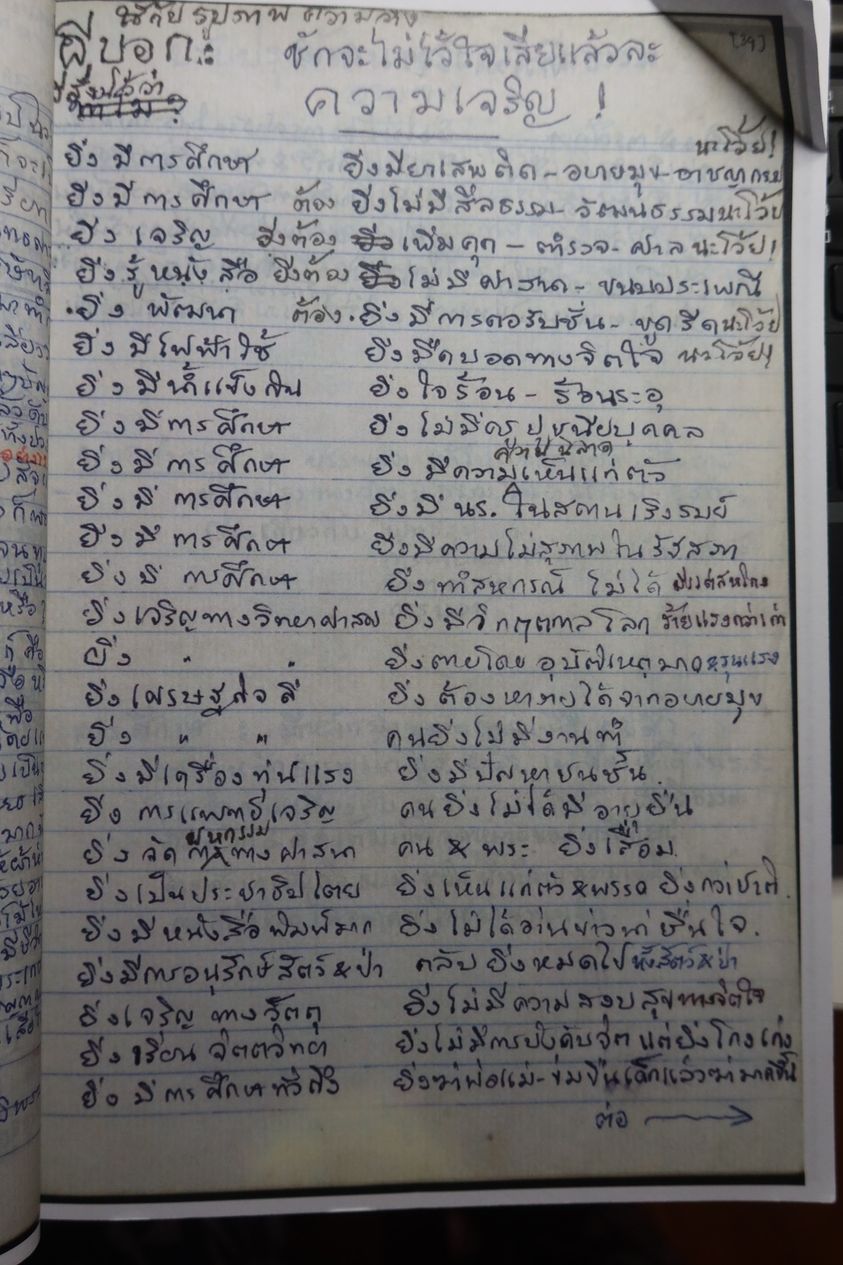 ผีบอก: ชักจะไม่ไว้ใจเสียแล้วละ
ความเจริญ !
นะโว้ย!
ยิ่ง มี การ ศึกษา ยิ่งมียาเสพติด - อบายมุข - อาชญากรรม
ยิ่ง มี การ ศึกษา ต้อง ยิ่งไม่มีศีลธรรม - วัฒนธรรมนะโว้ย
ยิ่ง เจริญ ยิ่งต้อง เพิ่มคุก - ตำรวจ - ศาล นะโว้ย!
ยิ่งรู้หนังสือ ยิ่งต้อง ไม่มีศาสนา - ขนบประเพณี
ยิ่ง พัฒนา ต้อง ยิ่งมีการคอรัปชั่น - ขูดรีดนะโว้ย
ยิ่ง มีไฟฟ้าใช้ ยิ่งมืดบอดทางจิตใจ นะโว้ย!
ยิ่ง มีน้ำแข็งกิน ยิ่งใจร้อน - ร้อนระอุ
ยิ่ง มีการ ศึกษา ยิ่งไม่มีครูปูชนียบุคคล
ยิ่ง มีการ ศึกษา ยิ่ง มีความเห็นแก่ตัว
ยิ่ง มี การศึกษา ยิ่ง มี นร. ในสถานเริงรมย์
ยิ่ง มี การศึกษา ยิ่งมีความไม่สุภาพในรัฐสภา
ยิ่ง มี การศึกษา ยิ่งทำสหกรณ์ ไม่ได้ มีแต่สหโกง
ยิ่งเจริญทางวิทยาศาสตร์ ยิ่งมีวิกฤตกาลโลก ร้ายแรงกว่าเก่า
ยิ่ง " " ยิ่งตายโดย อุบัติเหตุมาก&รุนแรง
ยิ่งเศรษฐกิจดี ยิ่ง ต้องหาภายได้จากอบายมุข
ยิ่ง " " คนยิ่งไม่มีงานทำ
ยิ่งมีเครื่องทุ่นแรง ยิ่งมีปัญหาชนชั้น.
ยิ่ง การแพทย์เจริญ คนยิ่งไม่ได้มีอายุยืน
ยิ่งจัด มหกรรมทางศาสนา คน & พระ ยิ่งเสื่อม.
ยิ่งเป็นประชาธิปไตย ยิ่งเห็นแก่ตัว&พรรค ยิ่งกว่าชาติ.
ยิ่งมีหนังสือพิมพ์มาก ยิ่งไม่ได้อ่านข่าวน่าชื่นใจ.
ยิ่งมีการอนุรักษ์สัตว์&ป่า กลับยิ่งหมดไปทั้งสัตว์&ป่า
ยิ่งเจริญทางวัตถุ ยิ่งไม่มีความสงบสุขทางจิตใจ
ยิ่งเรียนจิตตวิทยา ยิ่งไม่มีการบังคับจิต แต่ยิ่งโกงเก่ง
ยิ่งมีการศึกษาทั่วถึง ยิ่งฆ่าพ่อแม่-ข่มขืนเด็กแล้วฆ่ามากขึ้น
ต่อ →